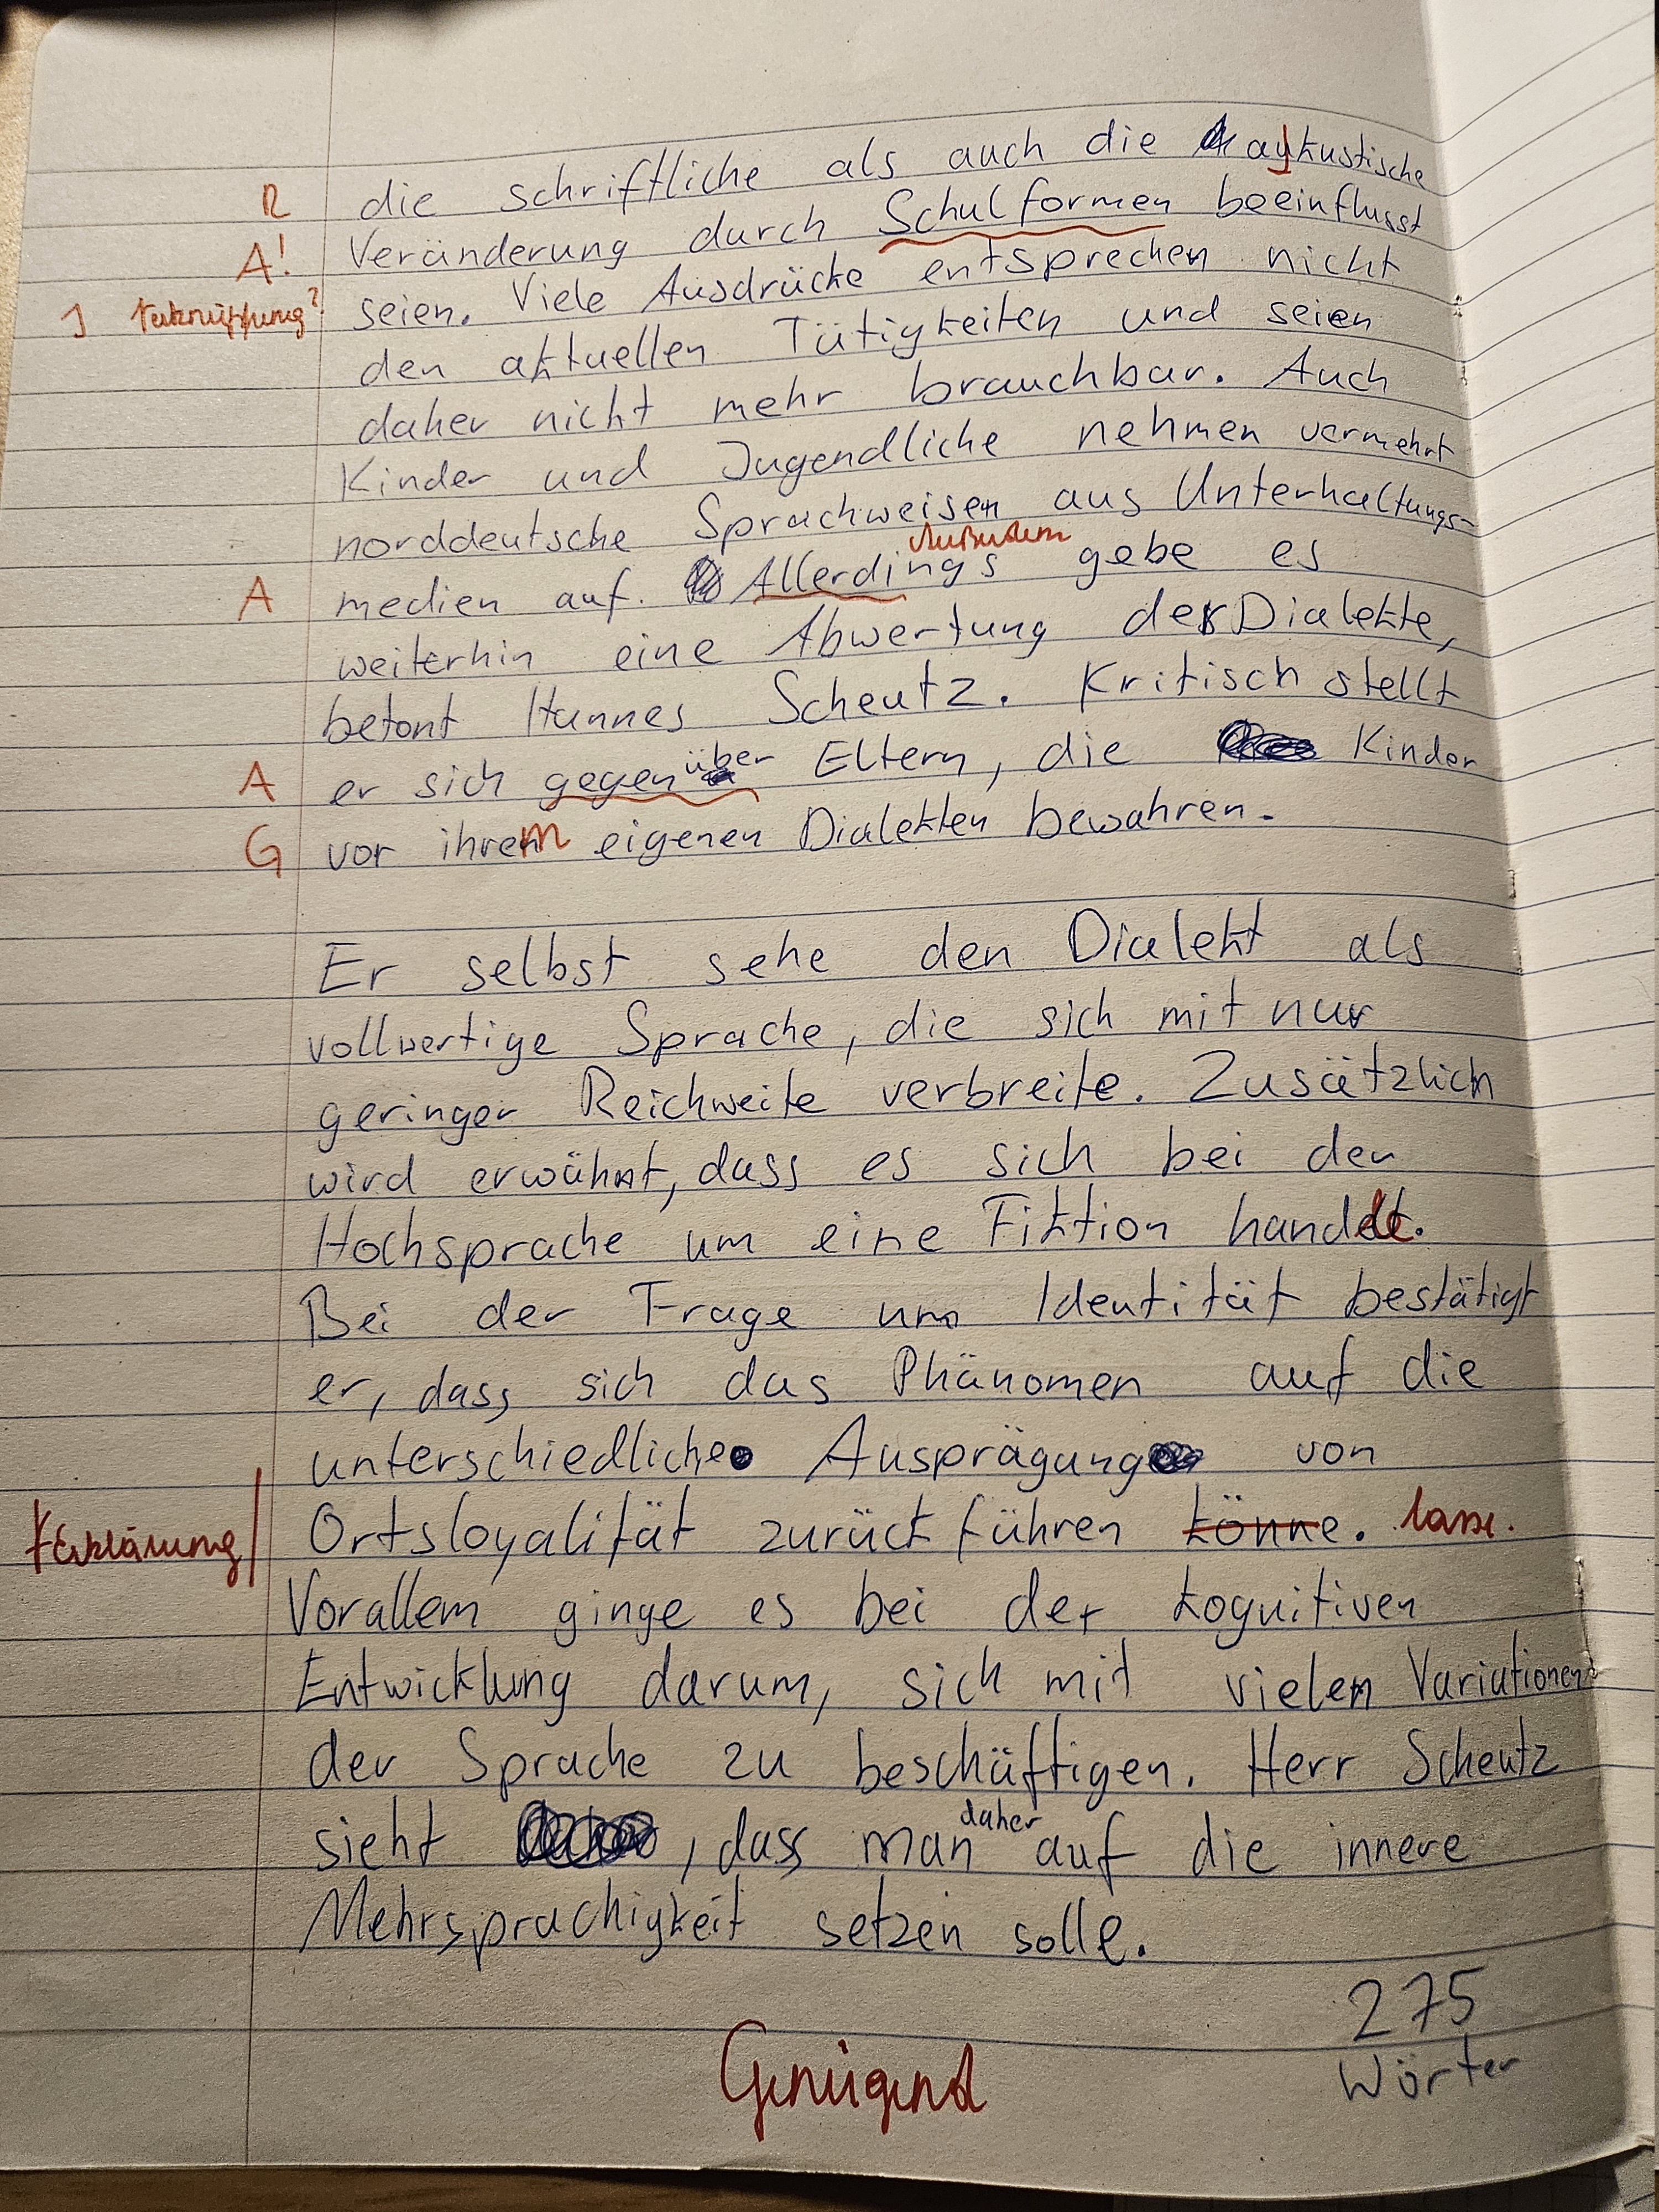 die schriftliche als auch die akustische
R
Veränderung durch Schulformen beeinflusst
A!
seien. Viele Ausdrücke entsprechen nicht
J Verknüpfung?
den aktuellen Tätigkeiten und seien
daher nicht mehr brauchbar. Auch
Kinder und Jugendliche nehmen vermehrt
norddeutsche Sprachweisen aus Unterhaltungs-
Außerdem
A medien auf. Allerdings gebe es
weiterhin eine Abwertung der Dialekte,
betont Hannes Scheutz. Kritisch stellt
A er sich gegenüber Eltern, die Kinder
G vor ihrem eigenen Dialekten bewahren.
Er selbst sehe den Dialekt als
vollwertige Sprache, die sich mit nur
geringer Reichweite verbreite. Zusätzlich
wird erwähnt, dass es sich bei der
Hochsprache um eine Fiktion handle.
Bei der Frage um Identität bestätigt
er, dass sich das Phänomen auf die
unterschiedliche Ausprägung von
Erklärung Ortsloyalität zurückführen könne. lasse.
Vorallem ginge es bei der kognitiven
Entwicklung darum, sich mit vielen Variationen
der Sprache zu beschäftigen. Herr Scheutz
sieht , dass man daher auf die innere
Mehrsprachigkeit setzen solle.
275
Wörter
Genügend